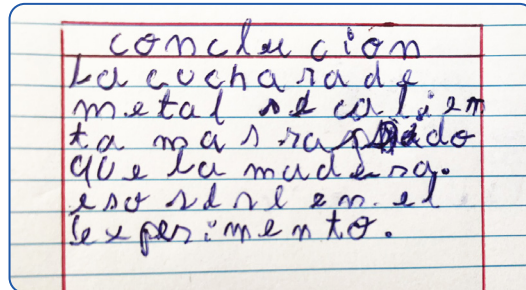 conclucion
La cucharade
metal se calien
ta mas rapido
que la madera.
eso en el
experimento.